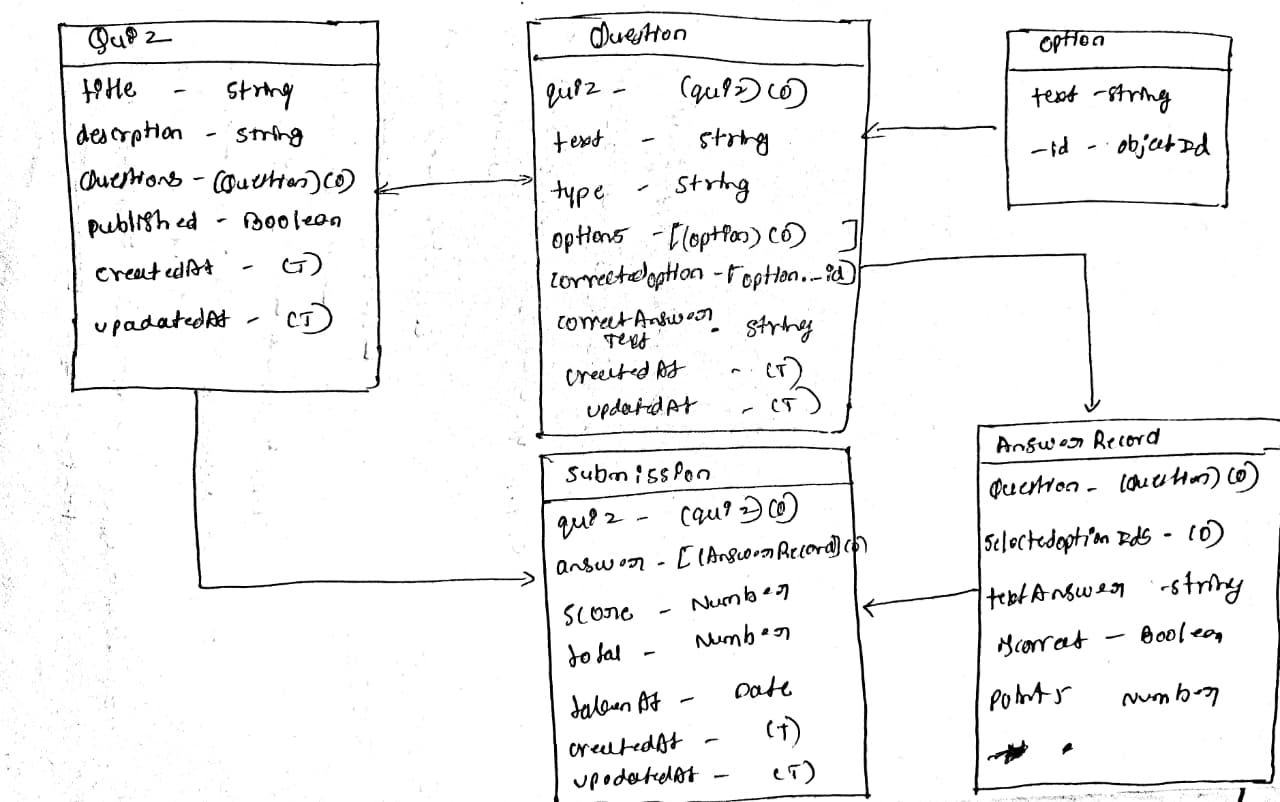 Quiz
title - string
description - string
Questions - (Question)(O)
published - Boolean
createdAt - (T)
upadatedAt - (T)
Question
quiz - (quiz)(O)
text - string
type - string
options - [(option)(O) ]
correctedoption - [option._id]
correctAnswer - string
Text
createdAt - (T)
updatedAt - (T)
option
text - string
_id - objectId
Submission
quiz - (quiz)(O)
answer - [(AnswerRecord)(O)
score - Number
total - Number
takenAt - Date
createdAt - (T)
updatedAt - (T)
Answer Record
Question - (Question)(O)
Selectedoption IdS - (O)
textAnswer - string
iscorrect - Boolean
points Number